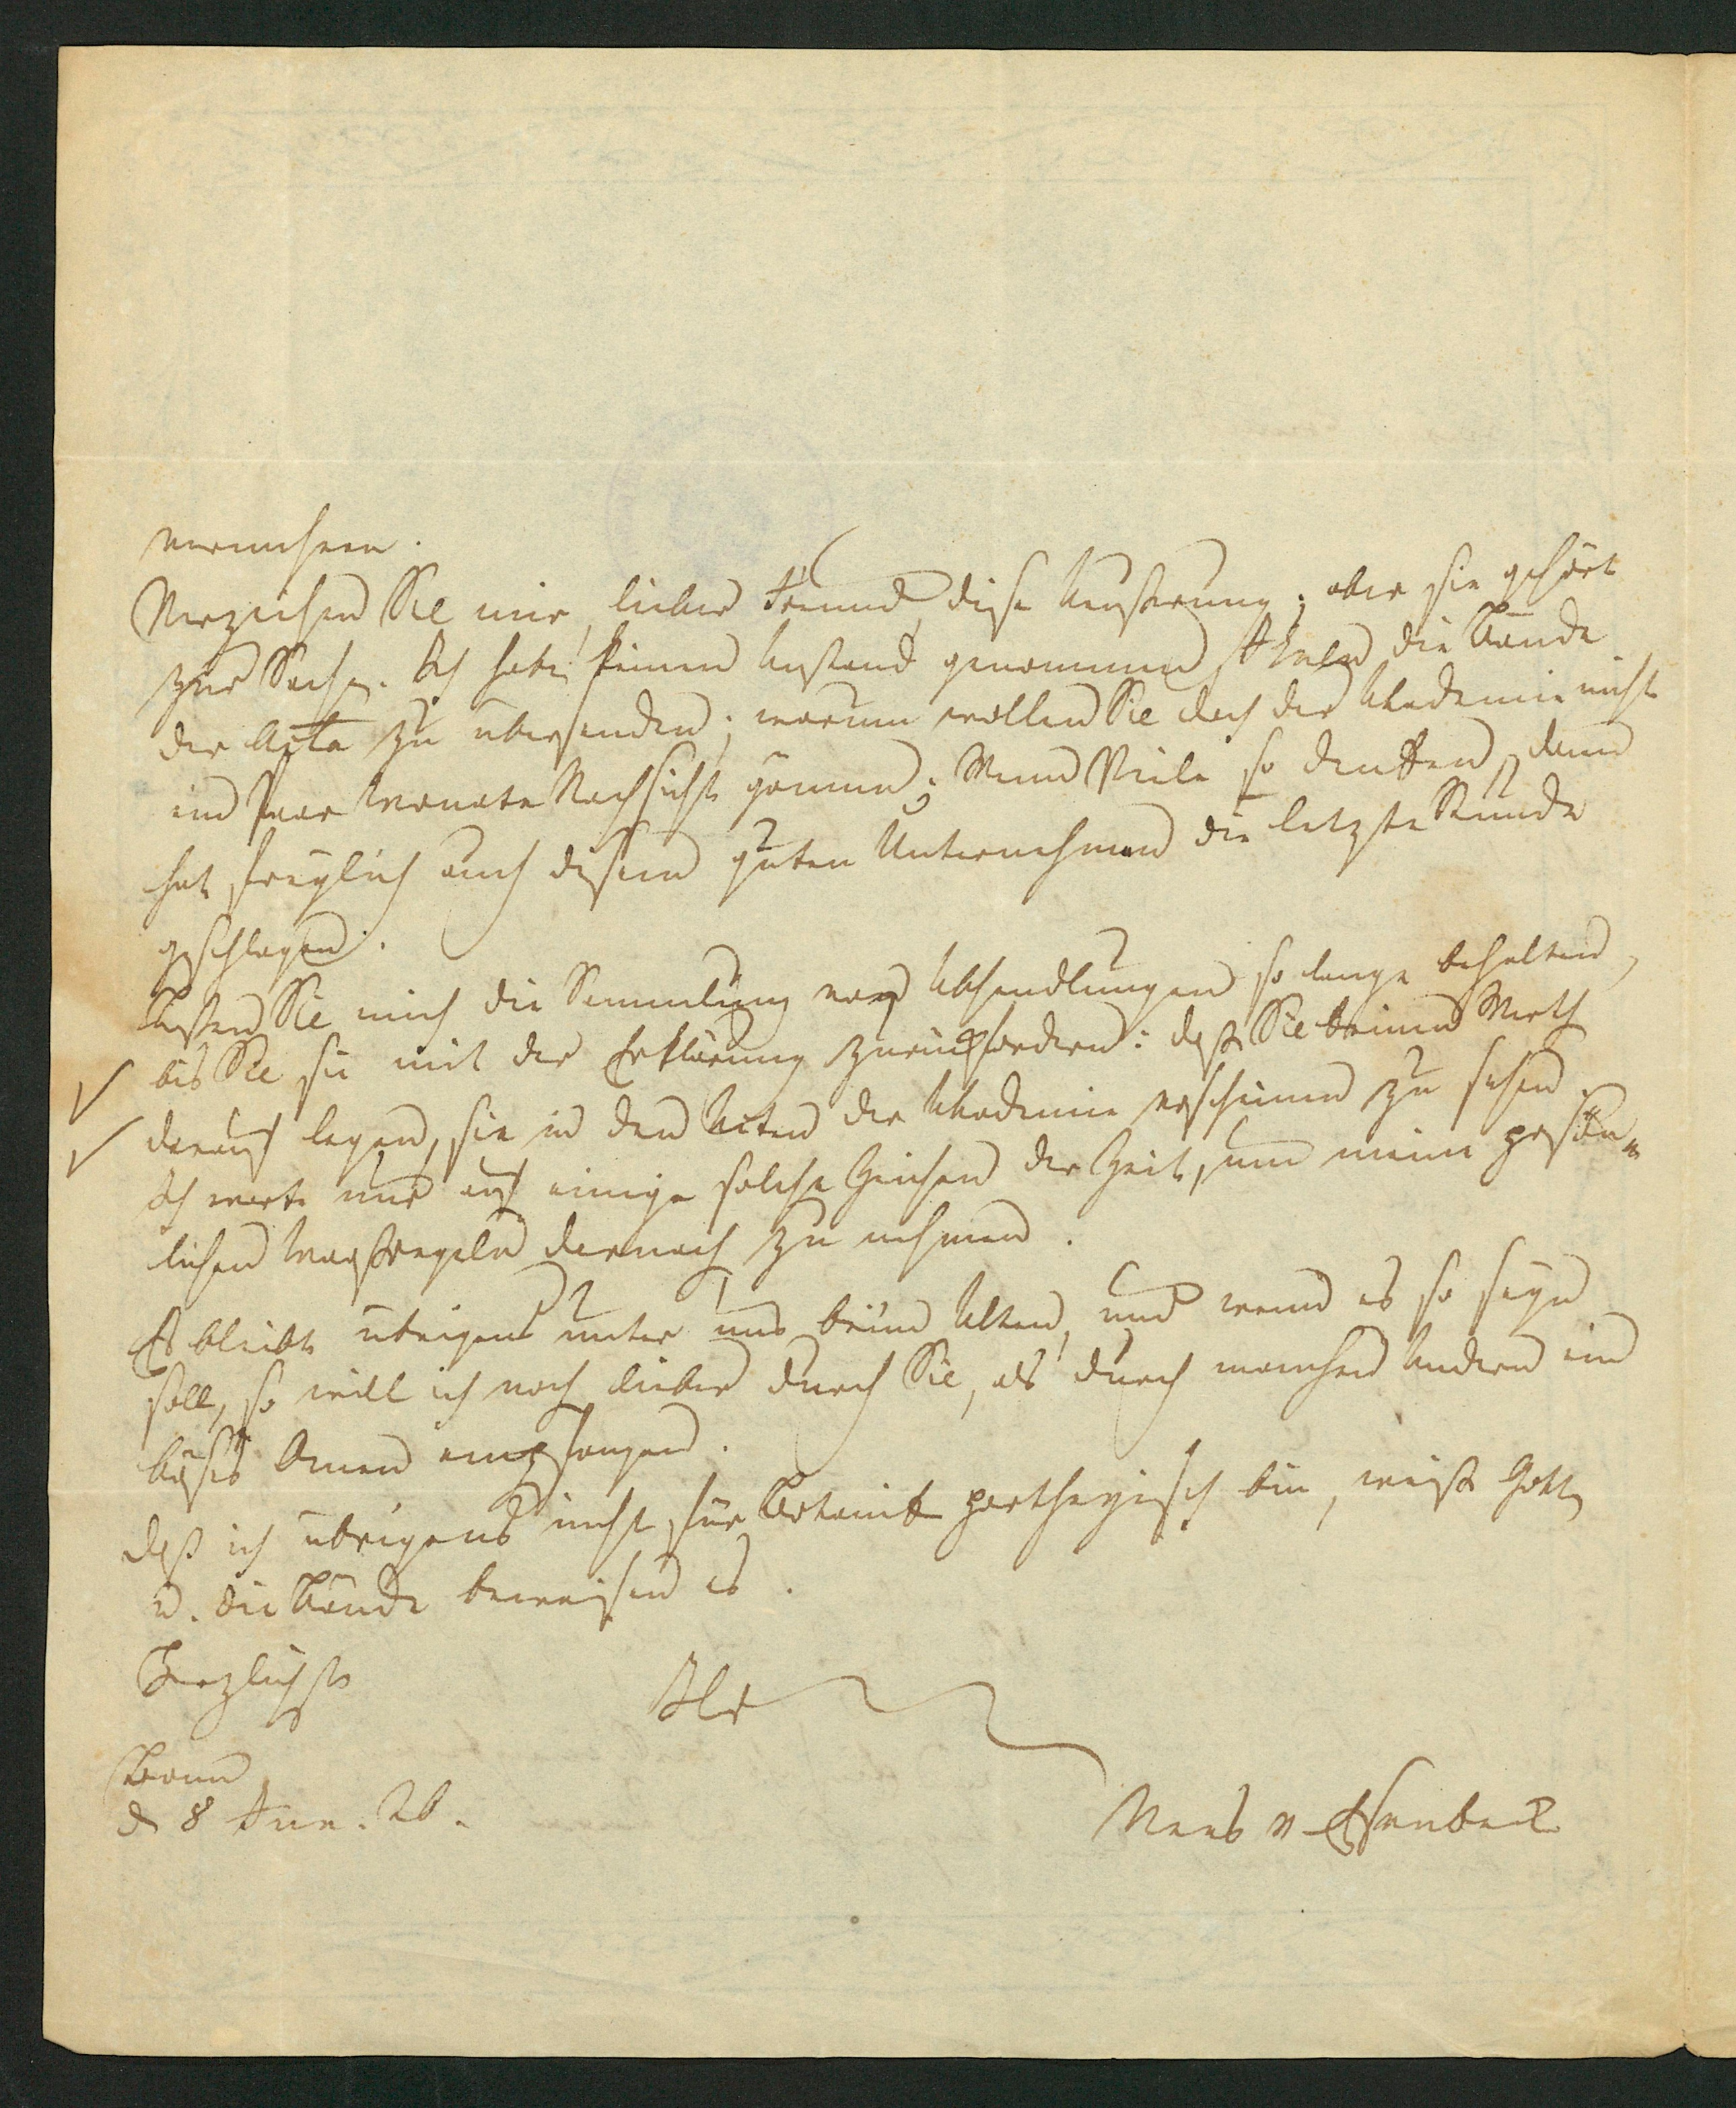 vermehren.
Verzeihen Sie mir, lieber Freund, diese Aeußerung; aber sie gehört
zur Sache. Ich habe keinen Anstand genommen, Ihnen die Bände
der Acta zu übersenden; warum wollen Sie doch der Akademie nicht
ein Paar Monate Nachsicht gönnen; Wenn Viele so denken, dann
hat freylich auch diesem guten Unternehmen die letzte Stunde
geschlagen.
Lassen Sie mich die Sammlung von Abhandlungen so lange behalten,
bis Sie sie mit der Erklärung zurückfordern: daß Sie keinen Werth
darauf legen, sie in den Acten der Akademie erscheinen zu sehen.
Ich warte nur auf einige solche Zeichen der Zeit, um meine persön-
lichen Maaßregeln darnach zu nehmen.
Es bleibt übrigens unter uns beim Alten, und wenn es so seyn
soll, so will ich noch lieber durch Sie, als durch manchen Andern ein
böses Omen empfangen.
Daß ich übrigens nicht für Botanik partheyisch bin, weiß Gott,
u. die Bände beweisen es.
Herzlichst
Ihr
Bonn
d 8 Jun. 26.
Nees v Esenbeck